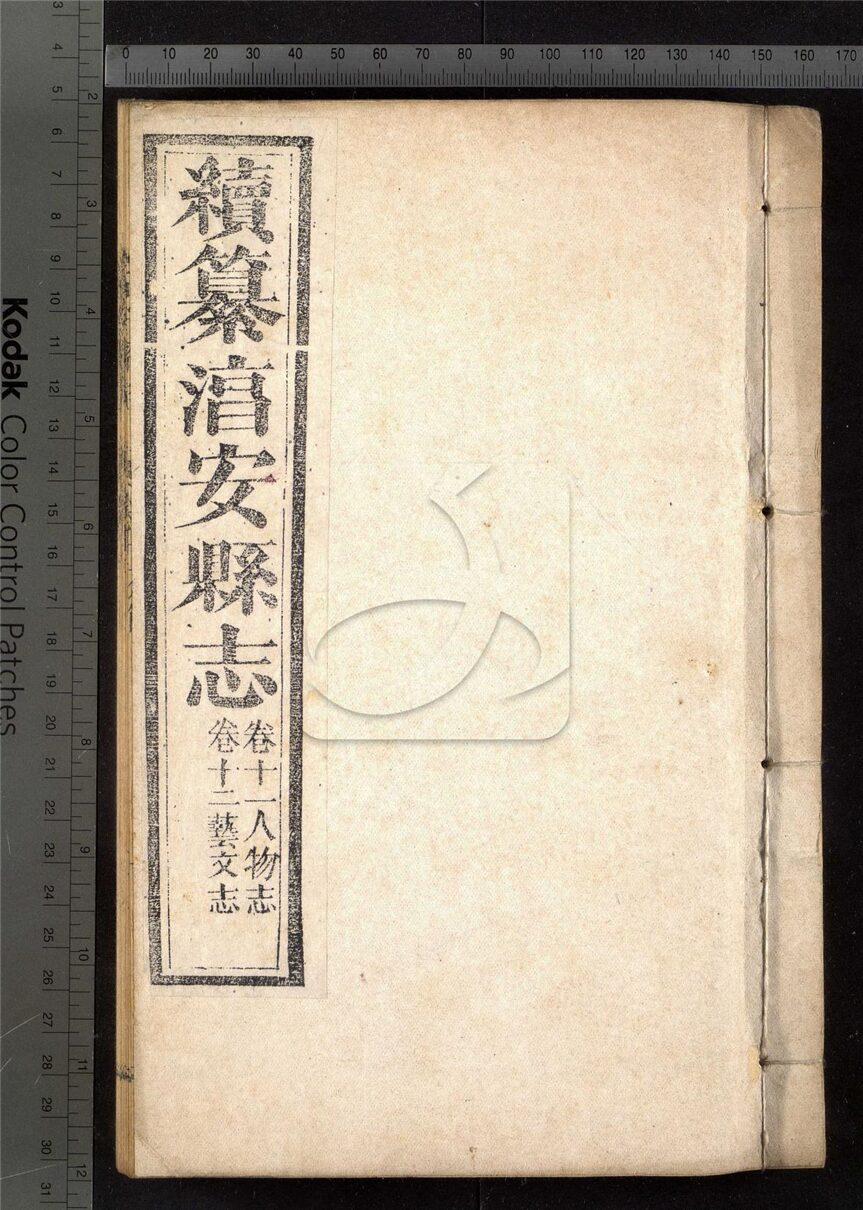 續纂湻安縣志
卷十一人物志
卷十二藝文志
0 10 20 30 40 50 60 70 80 90 100 110 120 130 140 150 160 170
Kodak Color Control Patches
3 4 5 6 7 8 9 10 11 12 13 14 15 16 17 18 19 20 21 22 23 24 25 26 27 28 29 30 31
2 3 4 5 6 7 8 9 10 11 12